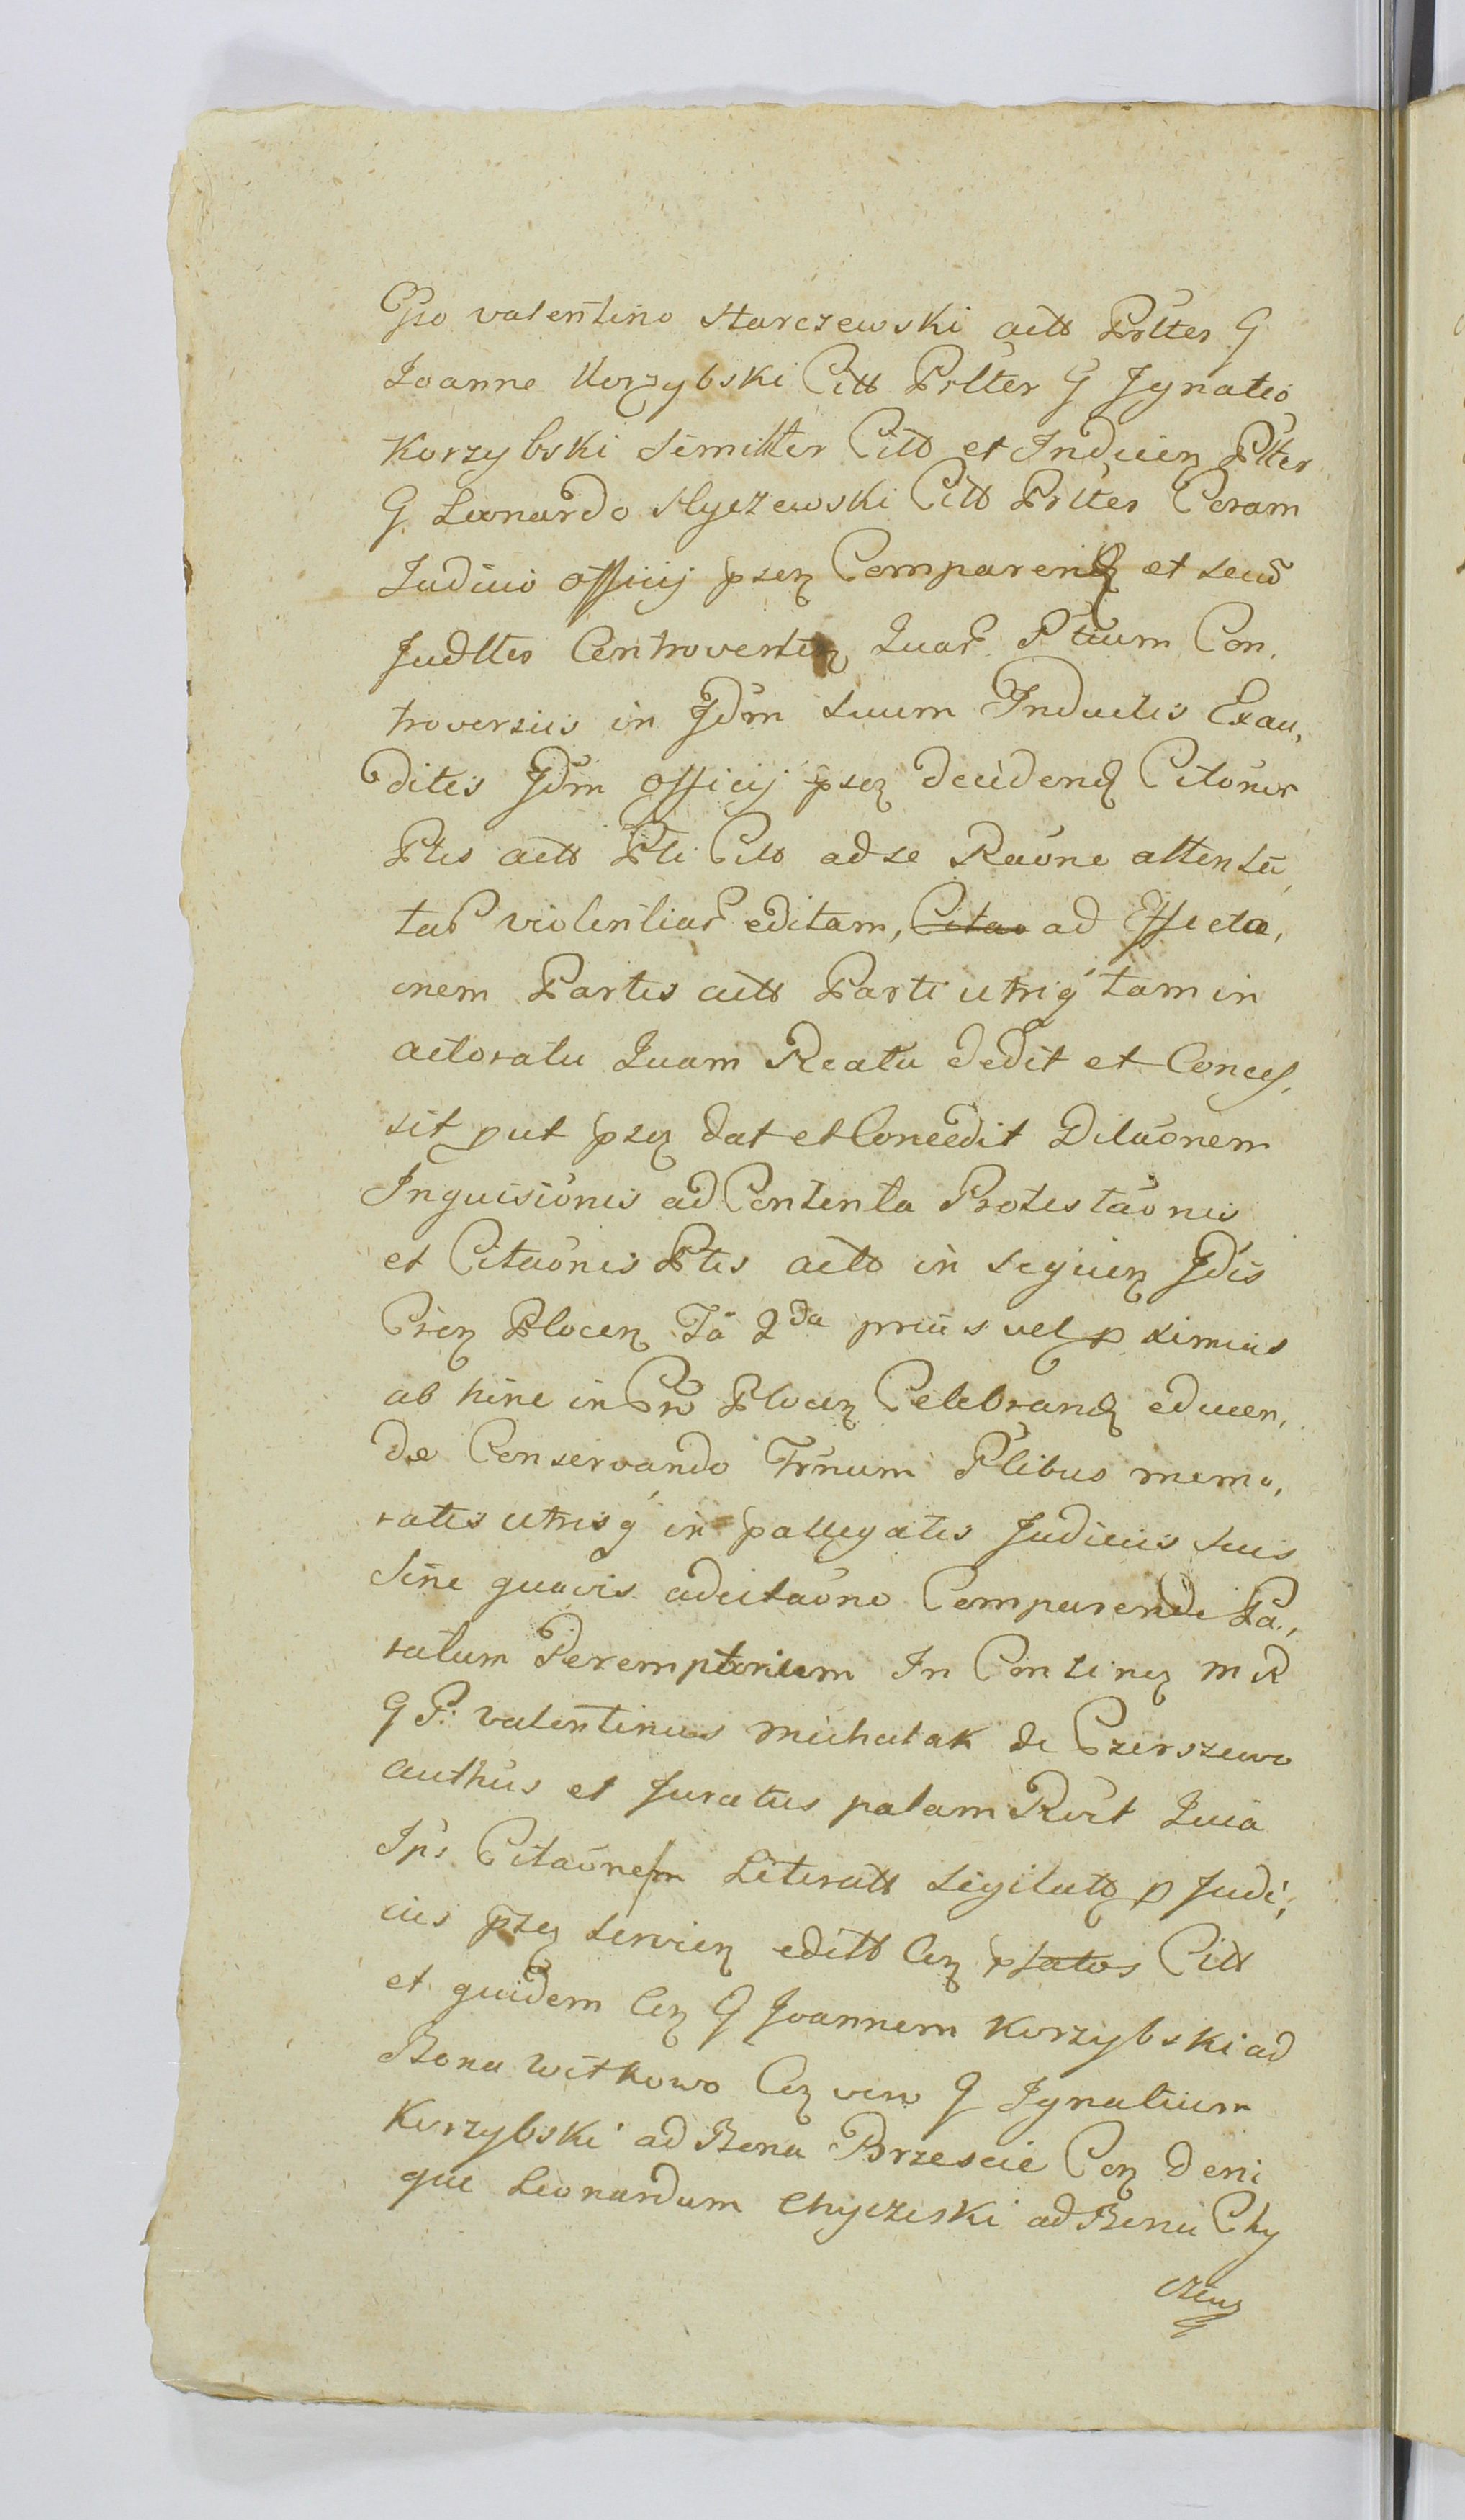 Gso valentino Starczewski actt Prlter G
Joanne Korzybski Citt Prlter G Ignatio
Korzybski Similter Citt et Inducen Plter
G Leonardo Hyczewski Citt Prlter Coram
Judicio Officij psen Comparend et secũ
Judlter Controverten Quar Ptium Con,
troversiis in Jdm suum Inductis Exau,
ditis Jdm Officij psen decidend Citõnis
Ptis actt Pti Citt ad se Raõne attenta
tar violentiar editam, ad Affecta,
onem Partis actt Parti utriq tam in
actoratu Quam Reatu dedit et Conces,
sit put psen dat et Concedit Dilaõnem
Inquisiõnis ad Contenta Protestaõnis
et Citaõnis Ptis actt in sequen Jdis
Cren Plocen Tã 2da prius vel p ximius
ab hinc in Cro Plocen Celebrand educen,
dæ Conservando Trnum Ptibus memo,
ratis utrisq in pallegatis Judiciis suis
Sine quavis adcitaõne Comparendi Pa,
ratum Peremptorium In Continen M R
G P: Valentinus Michalak de Czerszewo
authus et Juratus palam Rvit Quia
Ips Citaõnem Literatt Sigilatt p Judi,
ciis psen servien editt Con pfatos Citt
et quidem Con G Joannem Korzybski ad
Bona Witkowo Con vero G Ignatium
Korzybski ad Bona Brzescie Con deni
que Leonardum Chyczeski ad Bona Chy